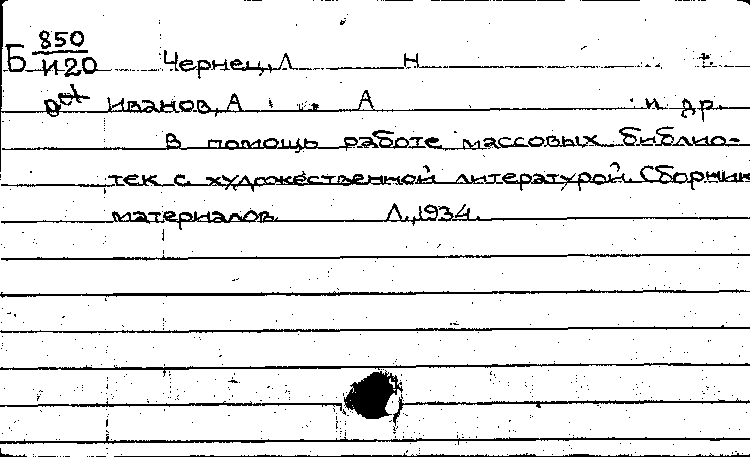 850
Б И20 Чернец, Л Н
det Иванов, А А и др.
В помощь работе массовых библио-
тек с художественной литературой. Сборник
материалов Л., 1934.